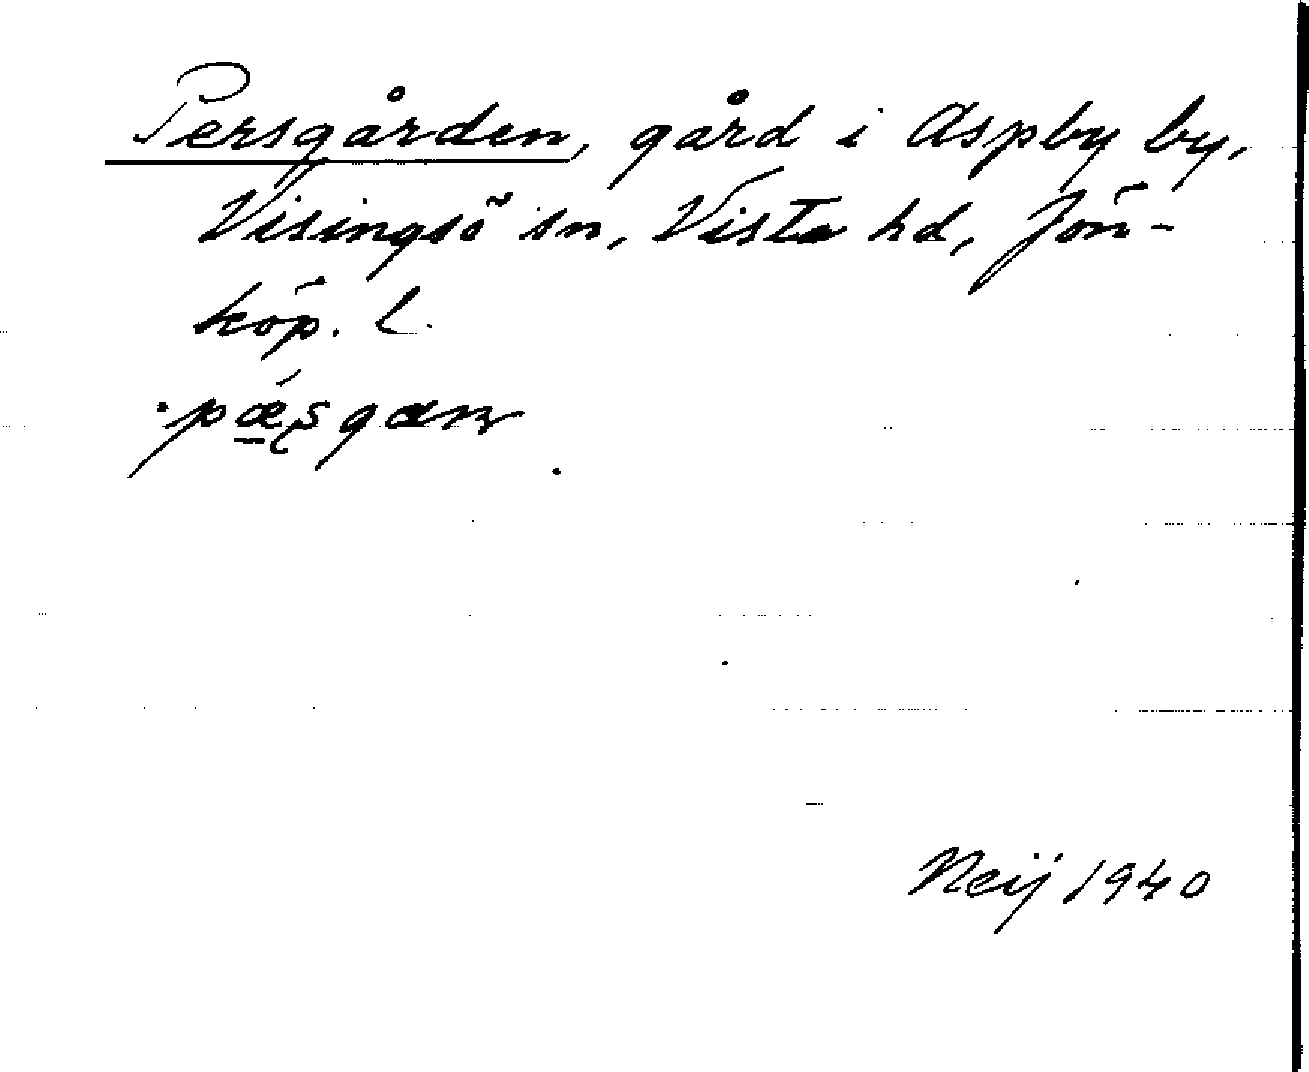 Persgården, gård i Aspby by,
Visingsö sn, Vista hd, Jön-
köp. L.
Neij 1940